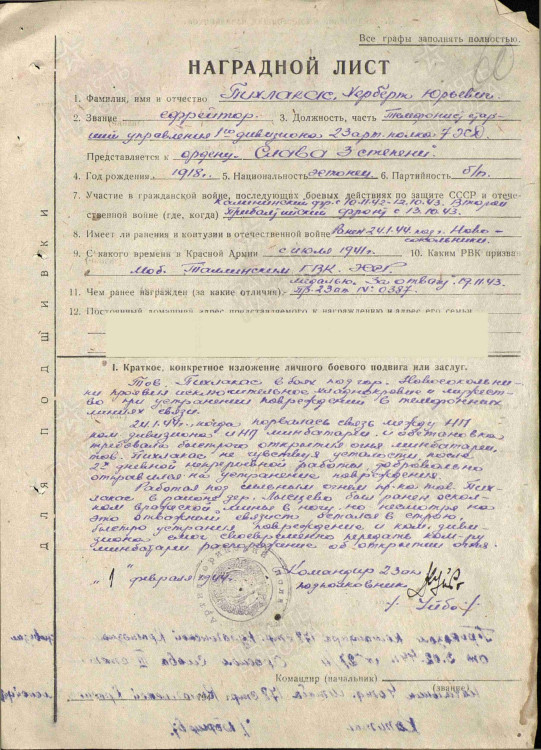 Все графы заполнять полностью.
60
НАГРАДНОЙ ЛИСТ
1. Фамилия, имя и отчество Пихлакас, Херберт Юрьевич.
2. Звание ефрейтор. 3. Должность, часть Телефонист, стар-
ший управления 1го дивизиона 23 арт. полка 7 ЭСД
Представляется к ордену "Слава 3 степени".
4. Год рождения 1918г. 5. Национальность эстонец 6. Партийность б/п.
7. Участие в гражданской войне, последующих боевых действиях по защите СССР и отече-
Калининский фр. с 10.11.42-12.10.43. Второй
ственной войне (где, когда) Прибалтийский фронт с 13.10.43.
8. Имеет ли ранения и контузии в отечественной войне Ранен 24.1.44 под г. Ново-
сокольники.
9. С какого времени в Красной Армии с июля 1941г. 10. Каким РВК призван
Моб. Таллинским ГВК. ЭССР.
11. Чем ранее награжден (за какие отличия) Медалью "За отвагу" 19.11.43.
Пр. 23 ап № 0387.
12. Постоянный домашний адрес представляемого к награждению и адрес его семьи
для подшивки
I. Краткое, конкретное изложение личного боевого подвига или заслуг.
Тов. Пихлакас в боях под гор. Новосокольни-
ки проявил исключительное хладнокровие и мужест-
во при устранении повреждений в телефонных
линиях связи.
24.1.44г., когда порвалась связь между НП
ком. дивизиона и НП минбатареи и обстановка
требовала быстрого открытия огня минбатареи,
тов. Пихлакас не чувствуя усталости после
2х дневной непрерывной работы, добровольно
отправился на устранение повреждения.
Работая под сильным огнем пр-ка тов. Пих-
лакас в районе дер. был ранен оскол-
ком вражеской мины в ногу, но несмотря на
это отважный связист остался в строю,
быстро устранил повреждение и ком. диви-
зиона смог своевременно передать ком-ру
минбатареи распоряжение об открытии огня.
"1" февраля 1944г.
Командир 23 ап
подполковник
/-Уйбо-/
Командир (начальник)
(звание)